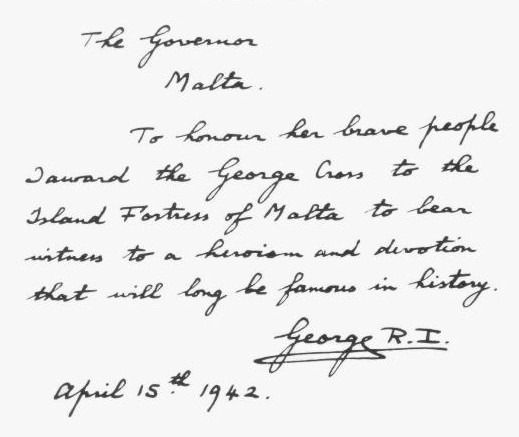 The Governor
Malta.
To honour her brave people
I award the George Cross to the
Island Fortress of Malta to bear
witness to a heroism and devotion
that will long be famous in history.
George R.I.
April 15th 1942.